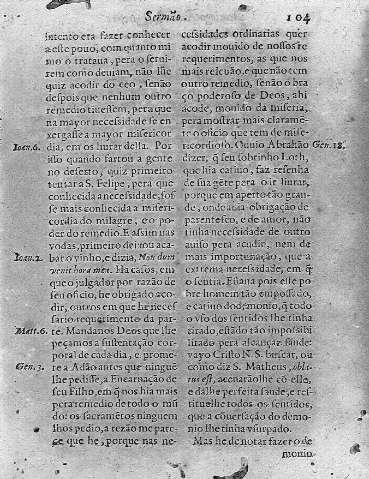 Sermão.
104
intento era fazer conhecer
a este pouo, com quanto mi
mo o trataua, pera o serui-
rem como deuiam, não lhe
quiz acodir do ceo, senão
despois que nenhum outro
remedio tiuessem, pera que
na mayor necessidade se en
xergasse a mayor misericor
Ioan.6.
dia, em os liurar della. Por
isso quando fartou a gente
no deserto, quiz primeiro
tentar a S. Felipe, pera que
conhecida a necessidade, fos
se mais conhecida a miseri-
cordia do milagre, e o po-
der do remedio. E assim nas
vodas, primeiro deixou aca-
Ioan.2.
bar o vinho, e dizia, Non dum
venit hora mea. Ha casos, em
que o julgador por razão de
seu officio, he obrigado aco-
dir, outros em que he neces
sario requerimento da par-
Matt.6.
te. Mandanos Deos que lhe
peçamos a sustentação cor-
poral de cada dia, e prome-
Gen.3.
te a Adão antes que ninguē
lhe pedisse, a Encarnação de
seu Filho, em q̃ nos hia mais
pera remedio de todo o mū
do: os sacramētos ninguem
lhos pedio, a rezão me pare-
ce que he, porque nas ne-
cessidades ordinarias quer
acodir mouido de nossos re
querimentos, as que nos
mais releuão, e que não tem
outro remedio, senão o bra-
ço poderoso de Deos, ahi
acode, mouido da miseria,
pera mostrar mais claramē-
te o officio que tem de mise-
ricordioso. Ouuio Abrahão
Gen.18.
dizer, q̃ seu sobrinho Loth,
que hia catiuo, faz resenha
de sua gēte pera o ir liurar,
porque em aperto tão gran-
de, onde auia obrigação de
parentesco, e de amor, não
tinha necessidade de outro
auiso pera acudir, nem de
mais importunação, que a
extrema necessidade, em q̃
o sentia. Estaua pois este po
bre homem tão empossado,
e catiuo do demonio, q̃ todo
o vso dos sentidos lhe tinha
tirado, estādo tão impossibi
litado pera alcançar saude:
vayo Cristo N. S. buscar, ou
como diz S. Matheus, obli-
tus est, acenarãolhe cō elle,
e dalhe perfeita saude, e res-
tituelhe todos os sentidos,
que a cōuersação do demo-
nio lhe tinha vsurpado.
Mas he de notar fazer o de
monio